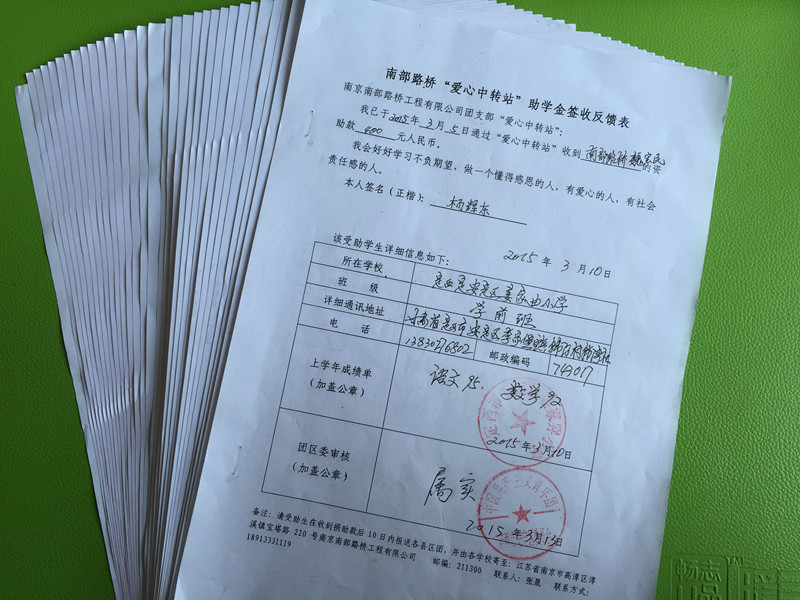 南部路桥“爱心中转站”助学金签收反馈表
南京南部路桥工程有限公司团支部“爱心中转站”：
我已于2015年3月5日通过“爱心中转站”收到南部路桥 的资
助款 元人民币。
我会好好学习不负期望，做一个懂得感恩的人，有爱心的人，有社会
责任感的人。
本人签名（正楷）：杨辉东
2015年3月10日
该受助学生详细信息如下：
所在学校 小学
班级 学前班
详细通讯地址 甘肃省定西市安定区李家堡镇
电话 13830276802 邮政编码 743017
上学年成绩单
（加盖公章）
语文95. 数学92
2015年3月10日
团区委审核
（加盖公章）
属实
2015年3月13日
备注：请受助生在收到捐助款后10日内报送各县区团，并由各学校寄至：江苏省南京市高淳区淳
溪镇宝塔路220号南京南部路桥工程有限公司 邮编：211300 联系人：张晟 联系方式：
18913331119
畅志